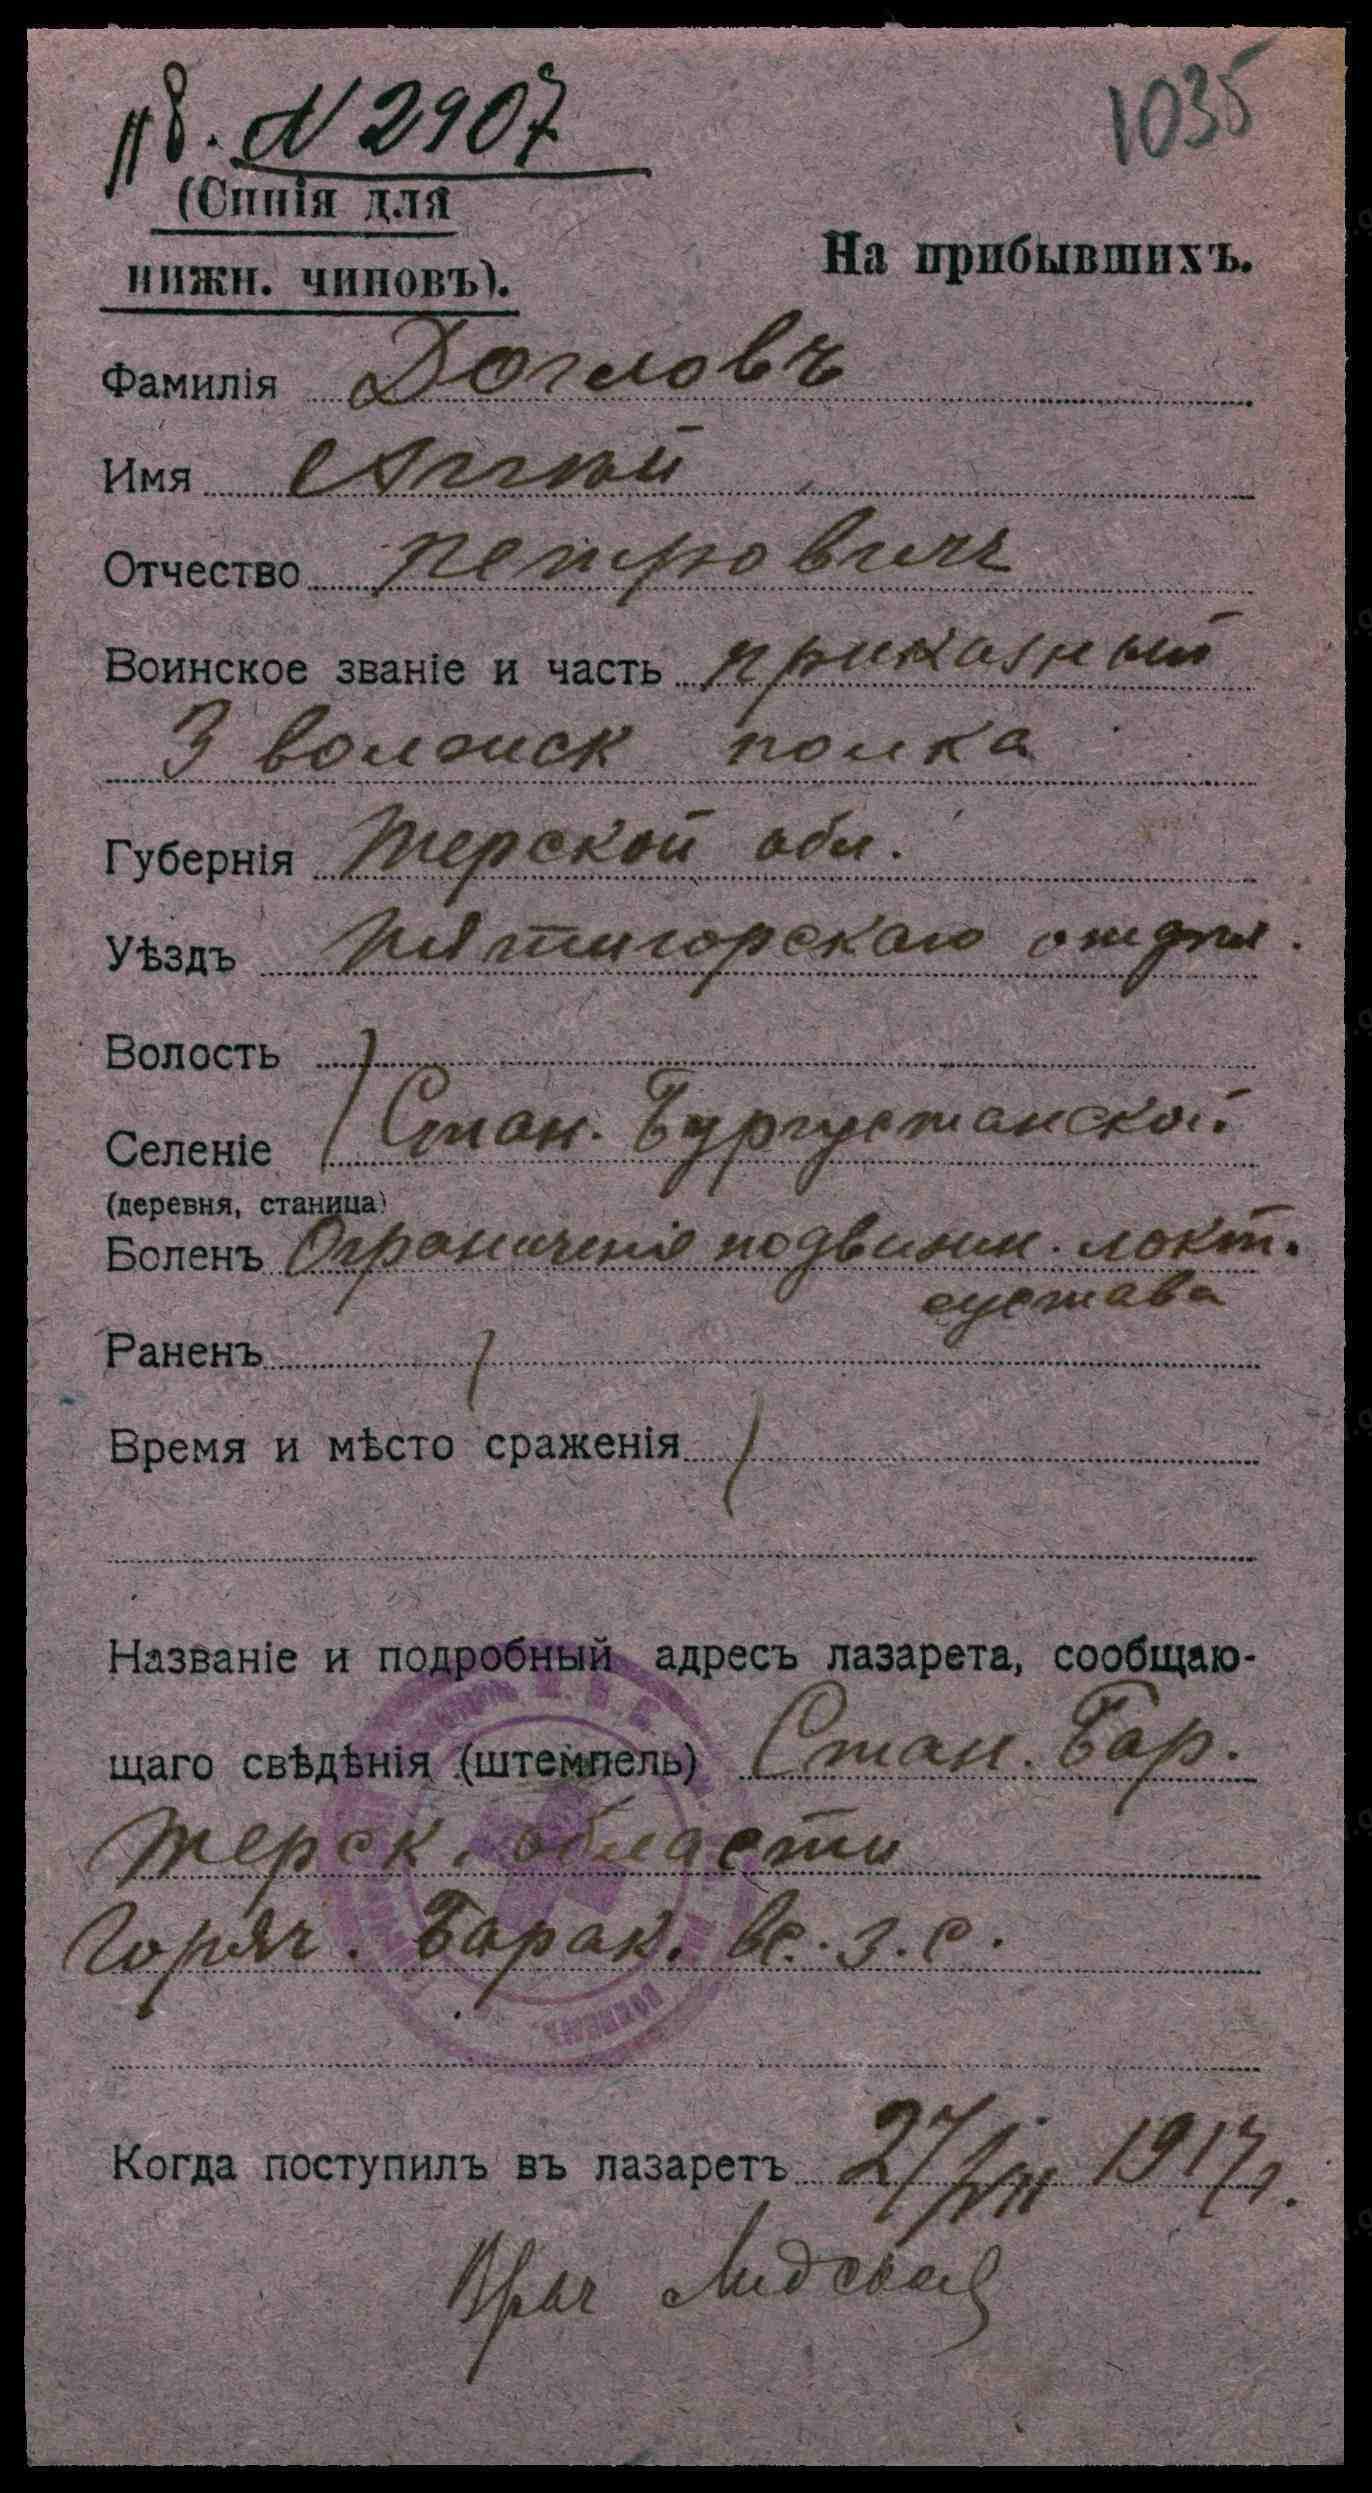 № 2907
1035
(Синія для
нижн. чиновъ).
На прибывшихъ.
Фамилія Догловъ
Имя
Отчество Петровичъ
Воинское званіе и часть приказный
3 волжск полка
Губернія Терской обл.
Уѣздъ Пятигорскаго отдѣла.
Волость
Селеніе Стан. Бургустанской
(деревня, станица)
Боленъ Ограниченіе подвижн. локт.
сустава
Раненъ
Время и мѣсто сраженія
Названіе и подробный адресъ лазарета, сообщаю-
щаго свѣдѣнія (штемпель) Стан. Гор.
Терск. области
Горяч. Барак. вс. з. с.
Когда поступилъ въ лазаретъ 27/VII 1917 г.
Врач Лидская